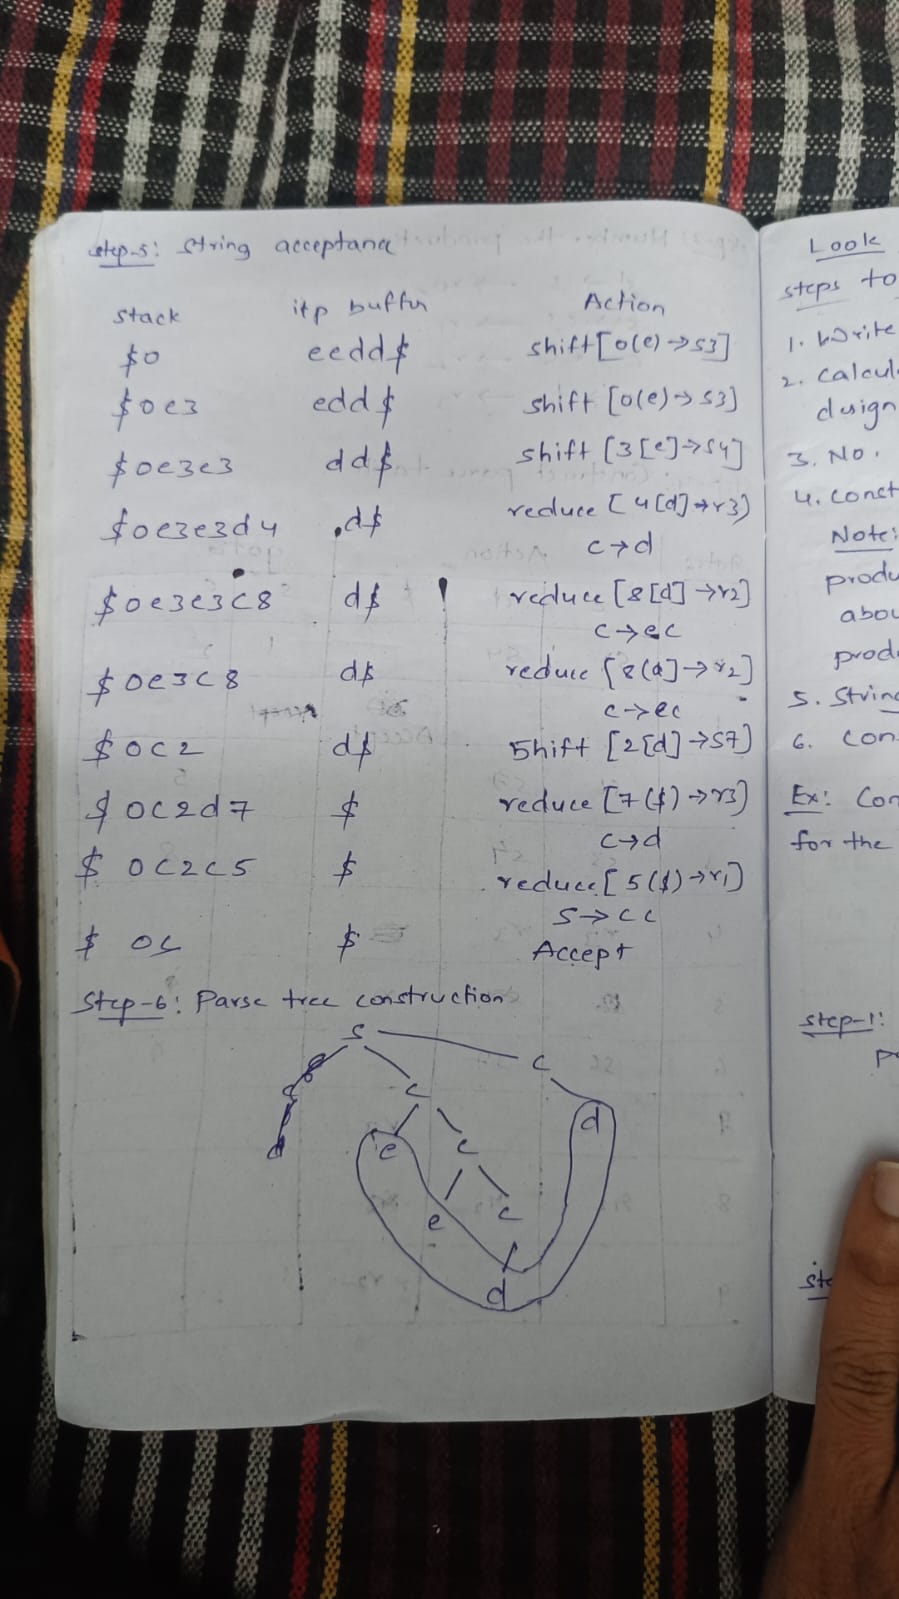 step-5: String acceptance
stack i+p buffer Action
$0 eedd$ shift[0(e)→s3]
$0e3 edd$ shift [0(e)→s3]
$0e3e3 dd$ shift [3[e]→s4]
$0e3e3d4 d$ reduce [4[d]→r3)
c→d
$0e3e3c8 d$ reduce [8[d]→r2]
c→ec
$0e3c8 d$ reduce [8(d]→r2]
c→ec
$0c2 d$ shift [2[d]→s7)
$0c2d7 $ reduce [7($)→r3)
c→d
$ 0c2c5 $ reduce[5($)→r1)
S→cc
$ 0S $ Accept
Step-6: Parse tree construction
S
c
c
d
e
c
e
c
d
Look
steps to
1. Write
2. calcul
design
3. No.
4. const
Note:
produ
abou
prod
5. String
6. con
Ex: Con
for the
step-1:
P
ste